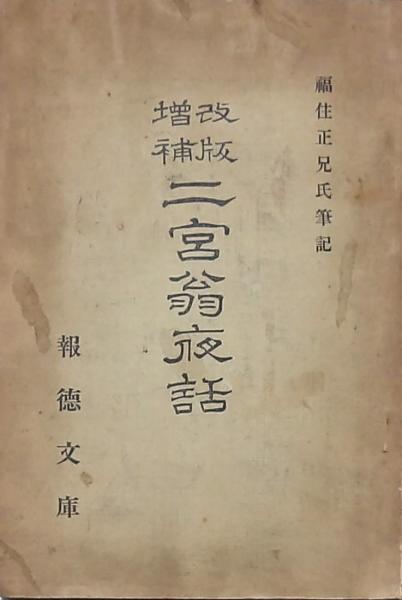 福住正兄氏筆記
改版
增補
二宮翁夜話
報德文庫